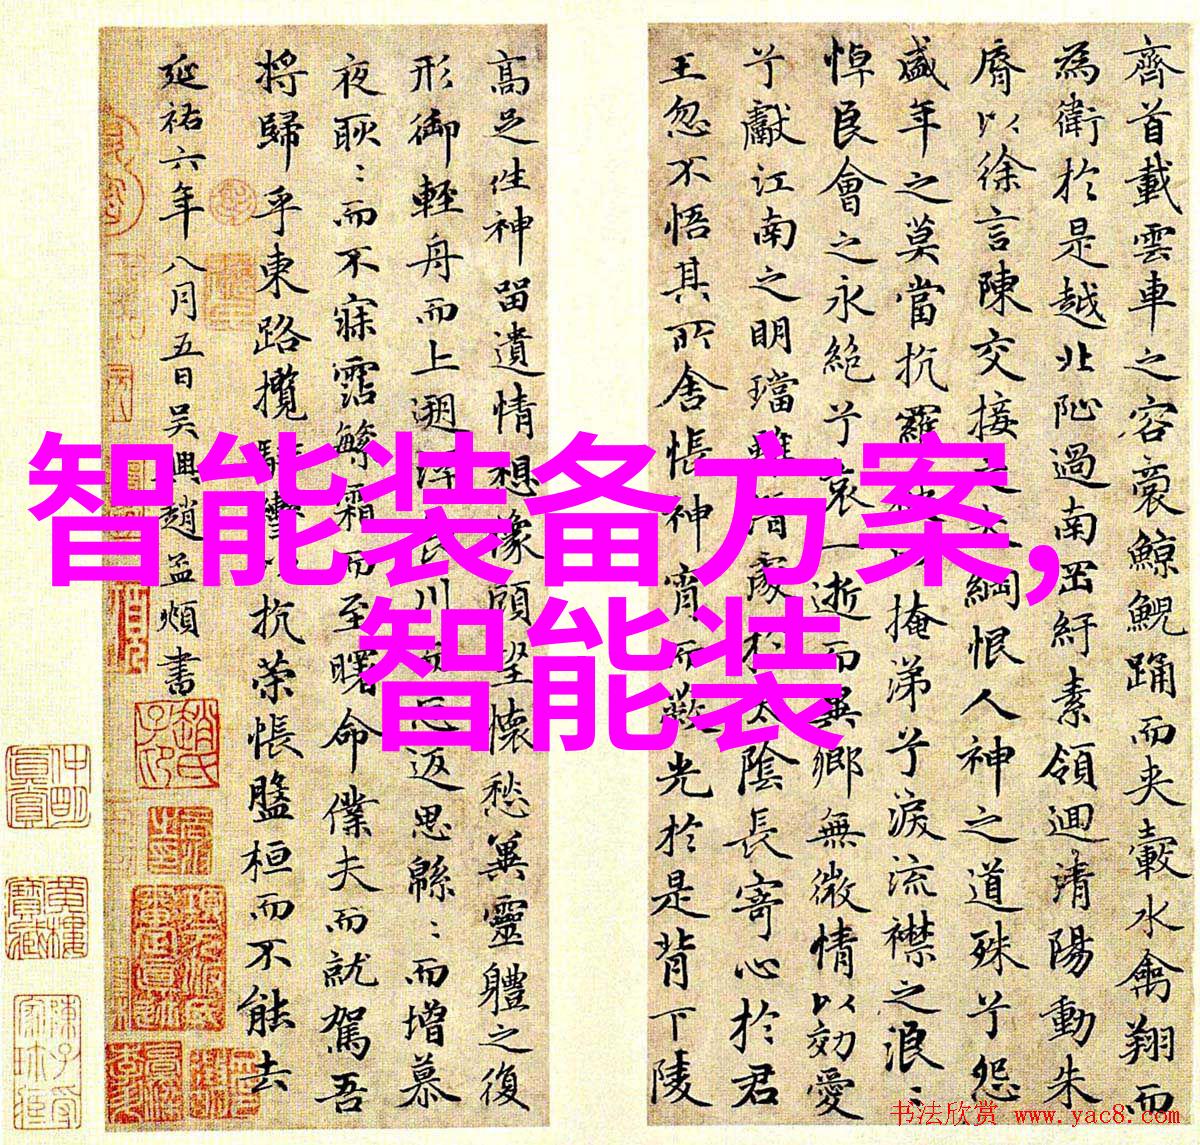 齊首載雲車之容裔鯨鯢踊而夾轂水禽翔而
為衛於是越北沚過南罡紆素領迴清陽動朱
脣以徐言陳交接之大綱恨人神之道殊兮怨
盛年之莫當抗羅袂以掩涕兮淚流襟之浪〻
悼良會之永絕兮哀一逝而異鄉無微情以効愛
兮獻江南之明璫雖潛處於太陰長寄心於君
王忽不悟其所舍悵神宵而蔽光於是背下陵
高足往神留遺情想像顧望懷愁冀靈體之復
形御輕舟而上遡浮長川而忘返思綿〻而增慕
夜耿〻而不寐霑繁霜而至曙命僕夫而就駕吾
將歸乎東路攬騑轡以抗策悵盤桓而不能去
延祐六年八月五日吴興趙孟頫書
智能装备方案,
智能装
书法欣赏 www.yac8.com